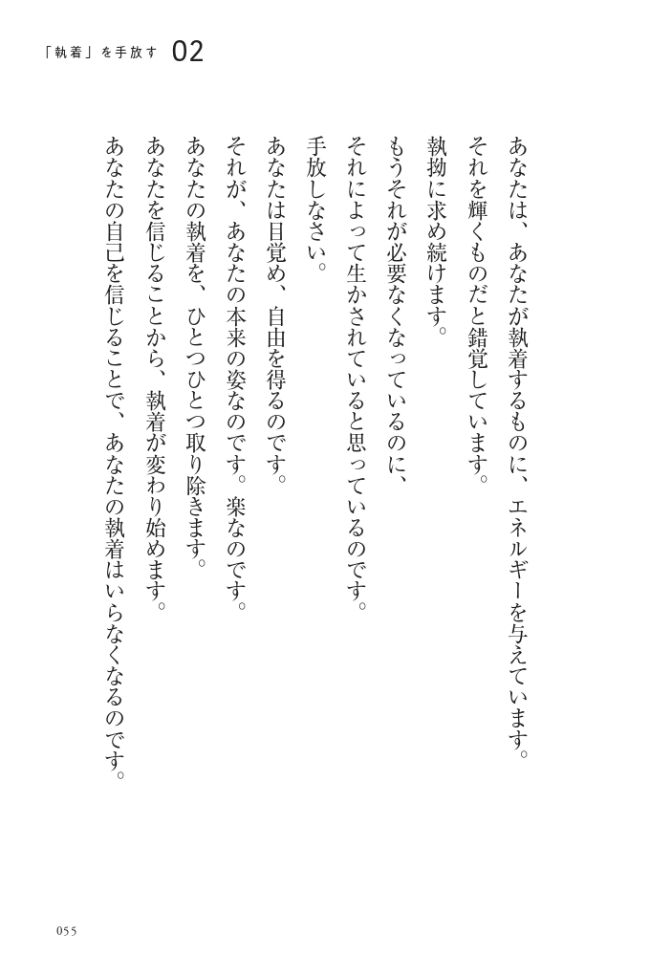 「執着」を手放す 02
あなたは、あなたが執着するものに、エネルギーを与えています。
それを輝くものだと錯覚しています。
執拗に求め続けます。
もうそれが必要なくなっているのに、
それによって生かされていると思っているのです。
手放しなさい。
あなたは目覚め、自由を得るのです。
それが、あなたの本来の姿なのです。楽なのです。
あなたの執着を、ひとつひとつ取り除きます。
あなたを信じることから、執着が変わり始めます。
あなたの自己を信じることで、あなたの執着はいらなくなるのです。
055